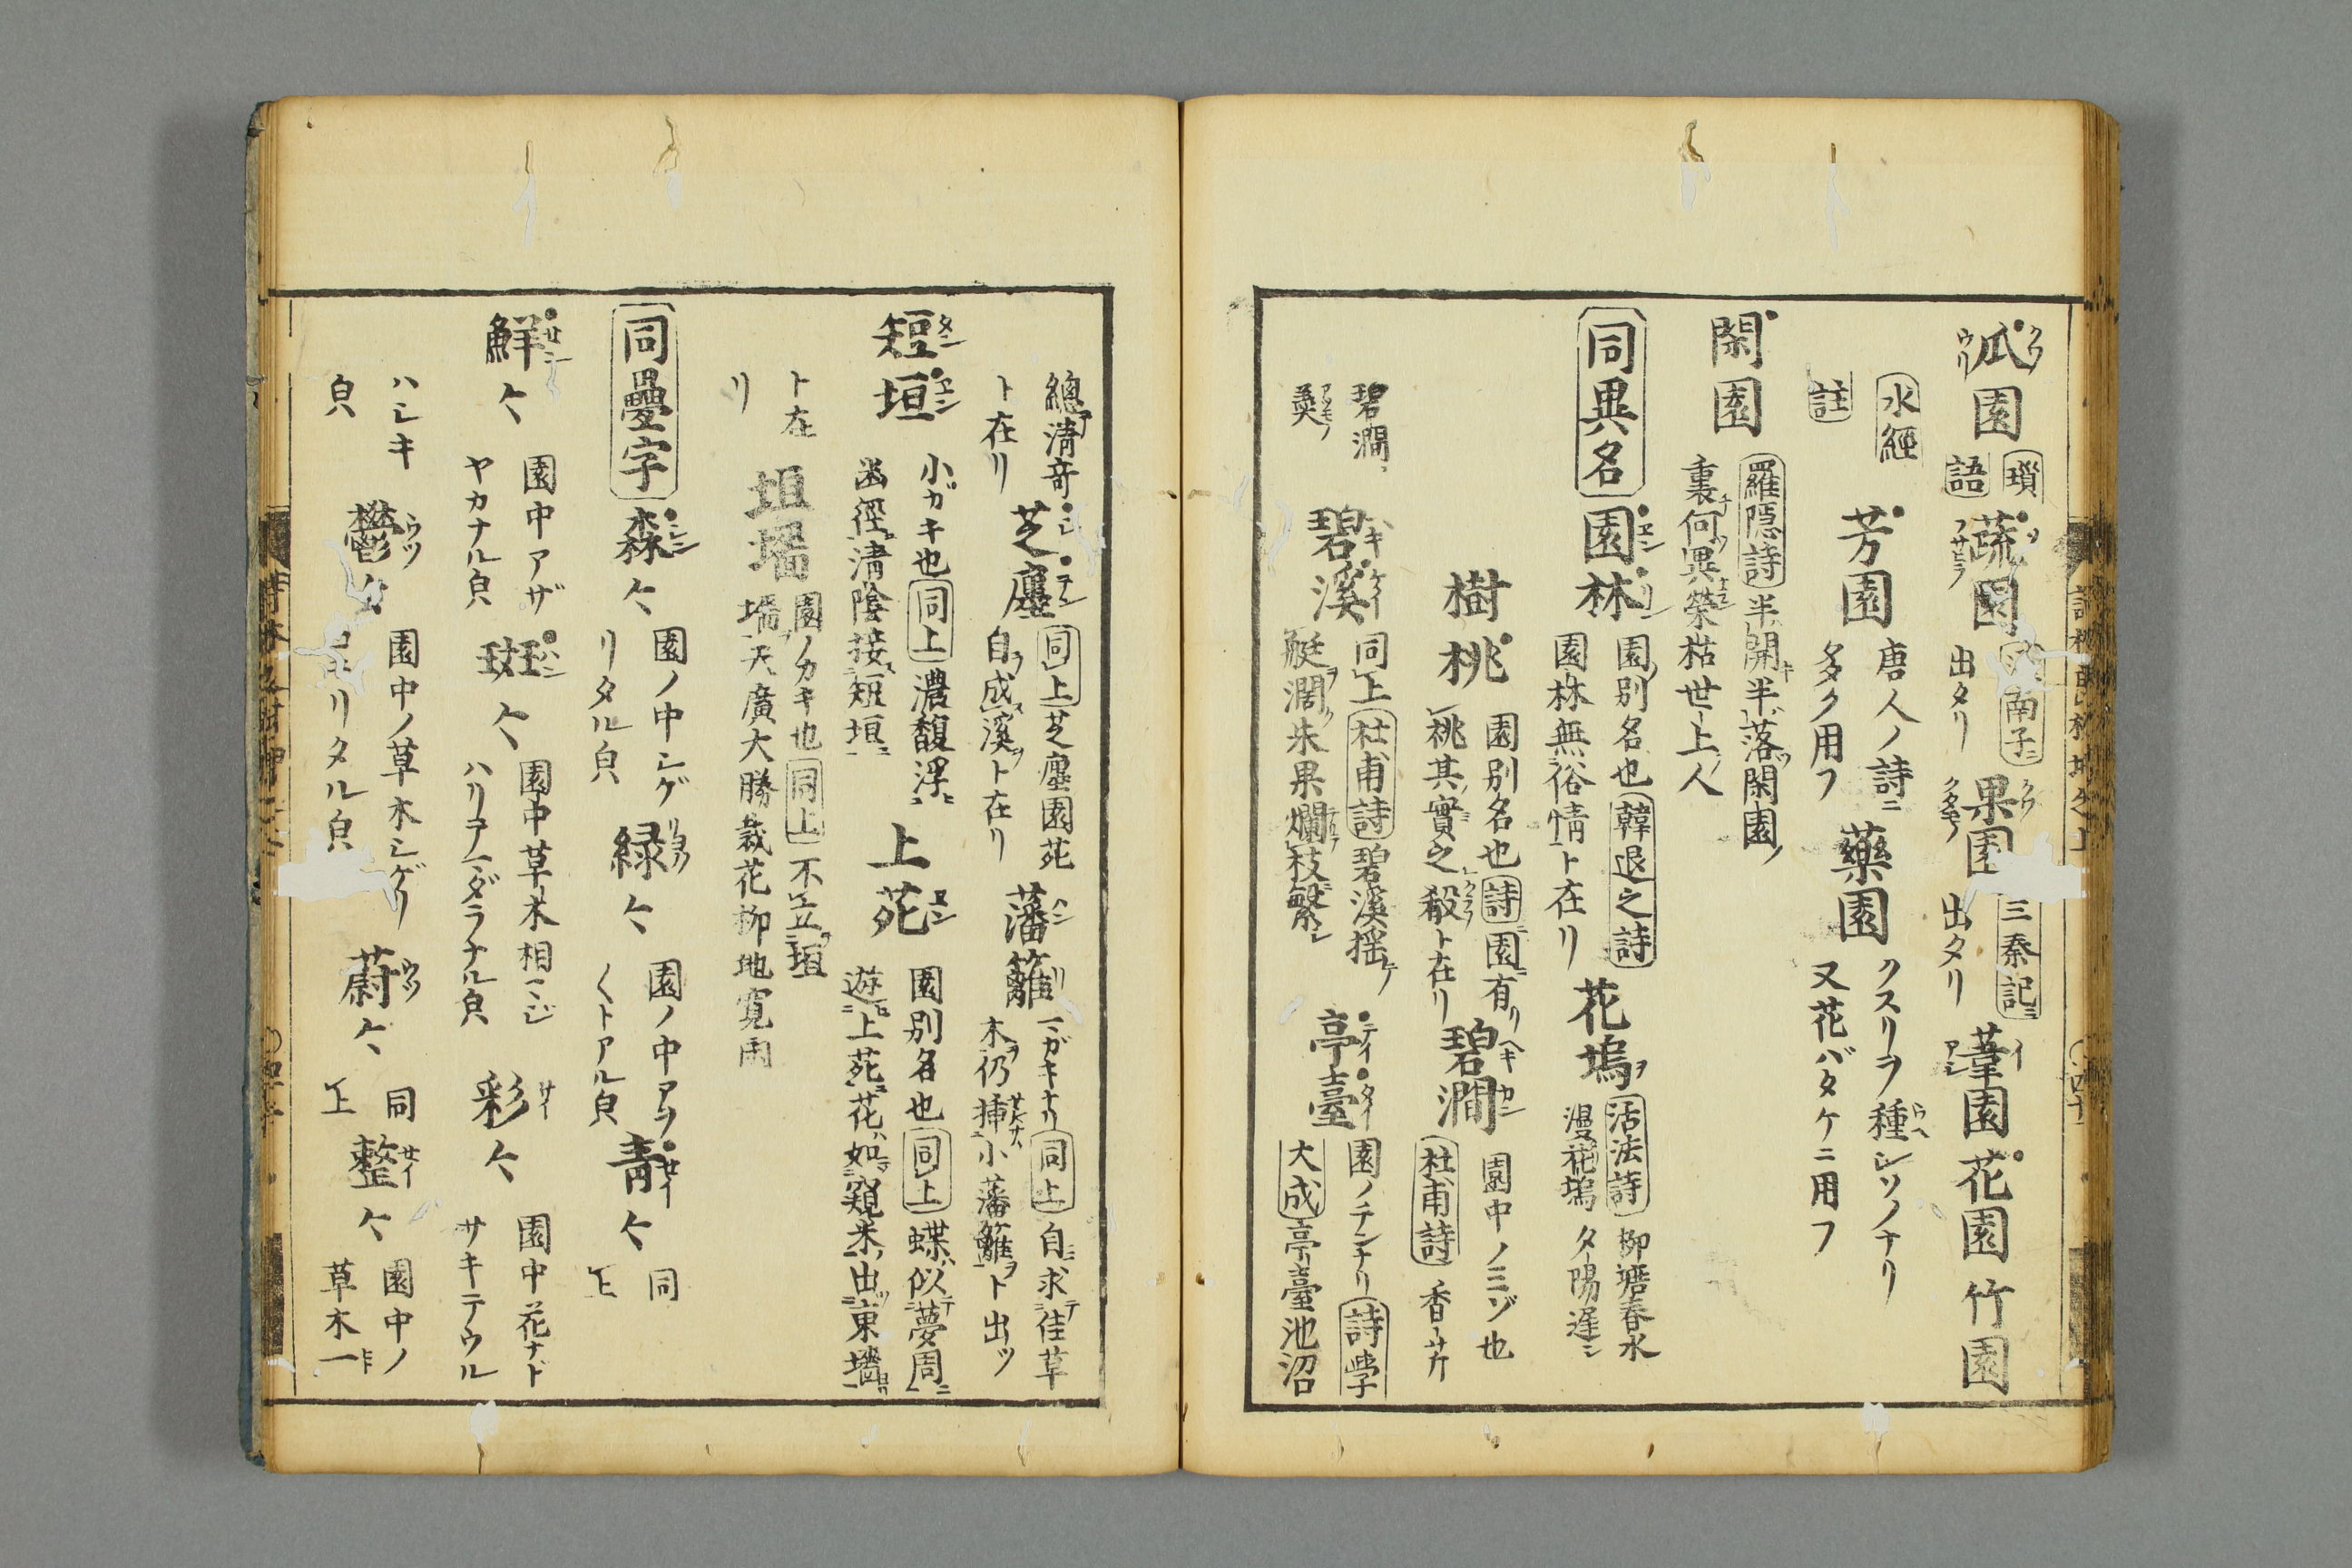 瓜園
瑣
語
蔬園
南子
出タリ
果園
三秦記
出タリ
葦園花園竹園
水經
註
芳園
唐人ノ詩ニ
多ク用フ
藥園
クスリヲ種シソノナリ
又花バタケニ用フ
閑園
羅隠詩半開半落閑園ノ
裏何異榮枯世上人
同異名
園林
園ノ別名也韓退之詩
園林無俗情ト在リ
花塢
活法詩柳塘春水
漫花塢夕陽遅シ
樹桃
園別名也詩園有リ
桃其實之殽ト在リ
碧澗
園中ノミゾ也
杜甫詩香芹
碧澗
羹
碧溪
同上杜甫詩碧溪揺
艇濶朱果爛枝繁シ
亭臺
園ノチンナリ詩學
大成亭臺池沼
總淸奇
ト在リ
芝廛
同上芝廛園苑
自成溪ト在リ
藩籬
同上自求佳草
木仍挿小藩籬ト出ツ
短垣
小ガキ也同上濃馥浮
幽徑淸陰接短垣
上苑
園別名也同上蝶似夢周
遊上苑花如窺宋出東墻
ト在
リ
垣墻
園ノカキ也同上不立垣
墻天廣大勝裁花柳地寛閑
同疊字
森々
園ノ中シゲ
リタル皃
緑々
園ノ中アヲ
〱トアル皃
青々
同
上
鮮々
園中アザ
ヤカナル皃
斑々
園中草木相マジ
ハリテマダラナル皃
彩々
園中花ナド
サキテウル
ハシキ
皃
鬱々
園中ノ草木シゲリ
リタル皃
蔚々
同
上
整々
園中ノ
草木一